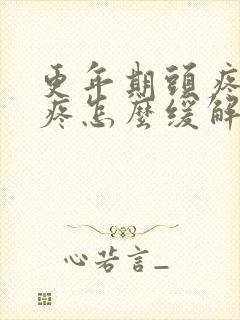 更年期頭疼
疼怎麼緩解
心若言_